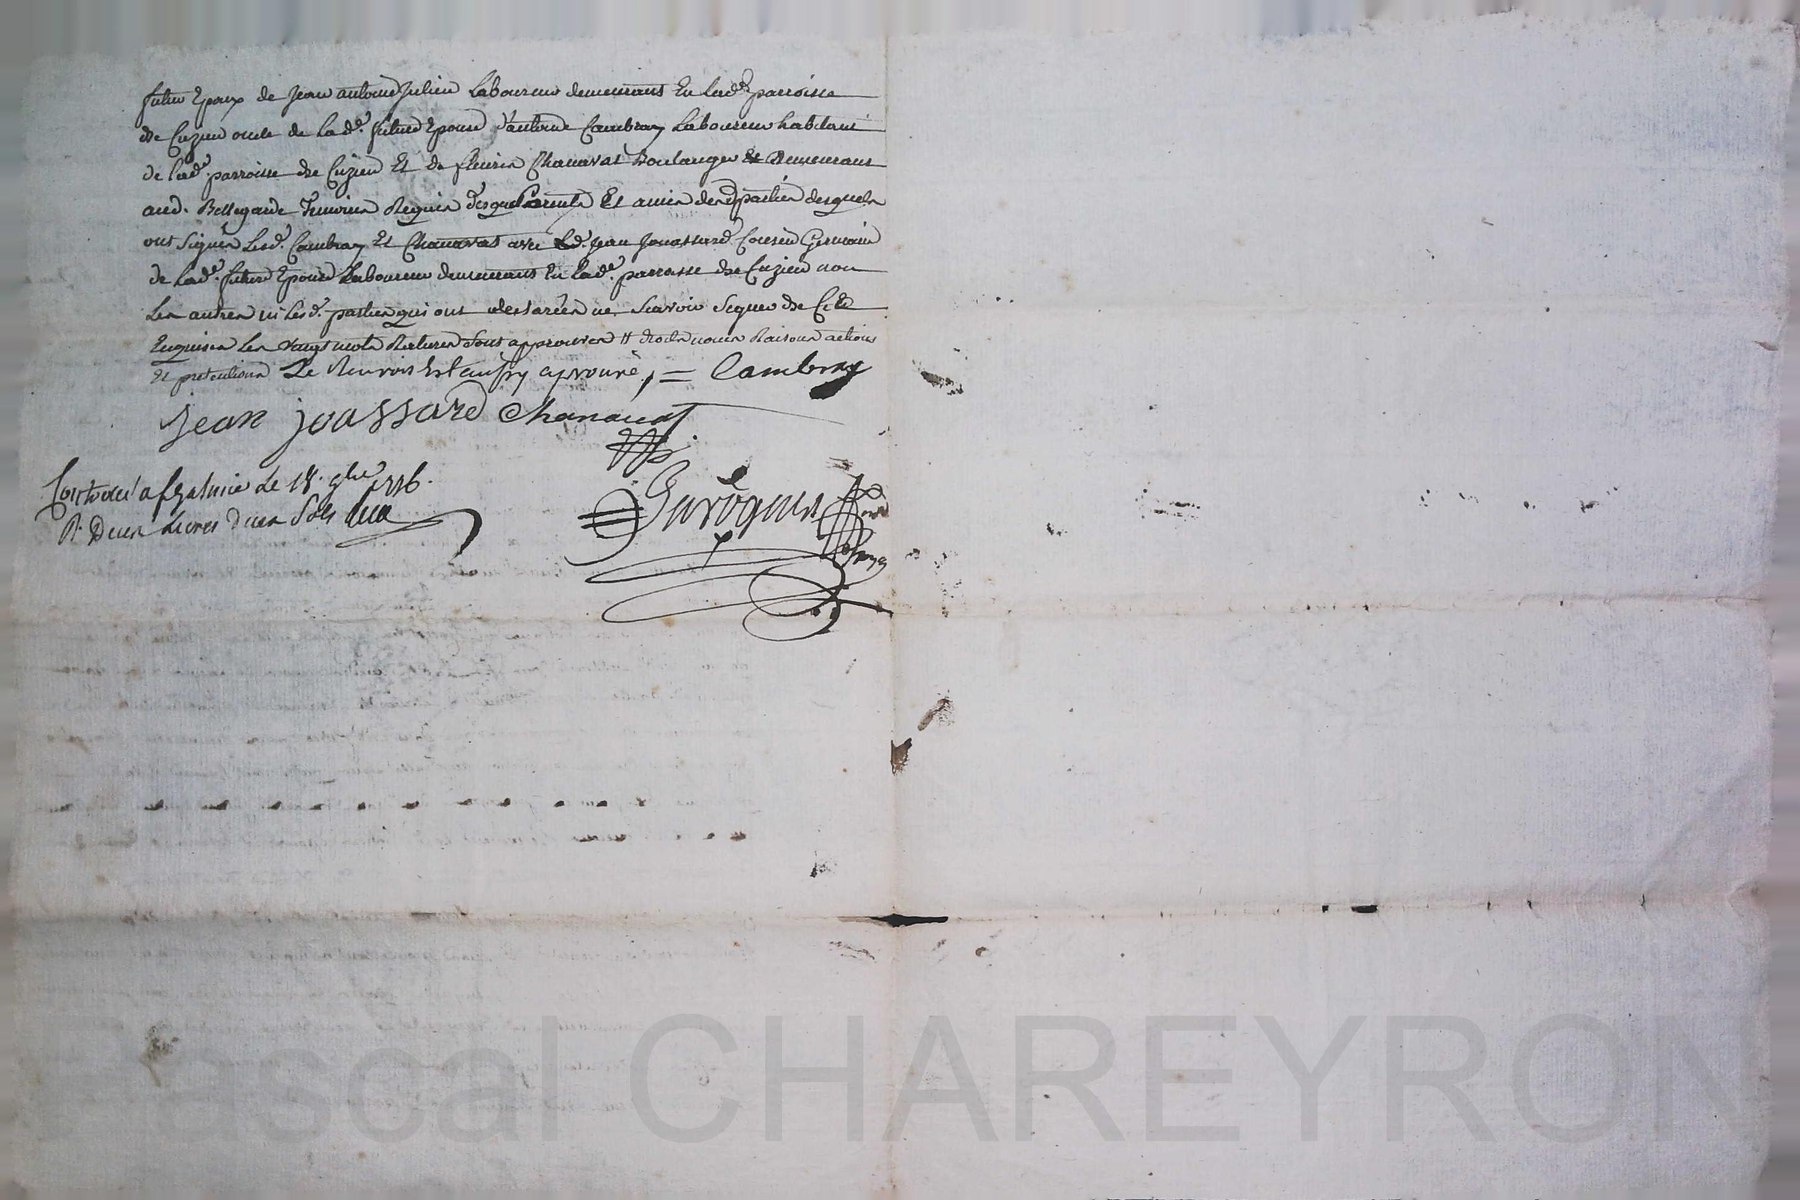 futur Epoux de Jean antoine Julien Laboureur demeurant En lad.e parroisse
de Cuzieu oncle de lad.e future Epouse d'antoine Cambray Laboureur habitant
de lad.e parroisse de Cuzieu Et de fleurin Chanavat Boulanger Et demeurant
aud. Bellegarde Temoins Requis Parents Et amis desd. parties desquels
ont signés lesd. Cambray Et Chanavat avec Led. Jean Jouassard Cousin Germain
de lad.e future Epouse Laboureur demeurant En lad.e parroisse de Cuzieu non
les autres ni lesd. parties qui ont declarées ne scavoir signer de Ce
Enquises Les vingt mots Ratures sont approuvées # droits noms Raisons actions
Et pretentions Le Renvois Est aussy aprouvé, = Cambray
Jean joassard Chanavat
Controllé a st galmier Le 18. 9bre
R. Deux Livres Deux Sols